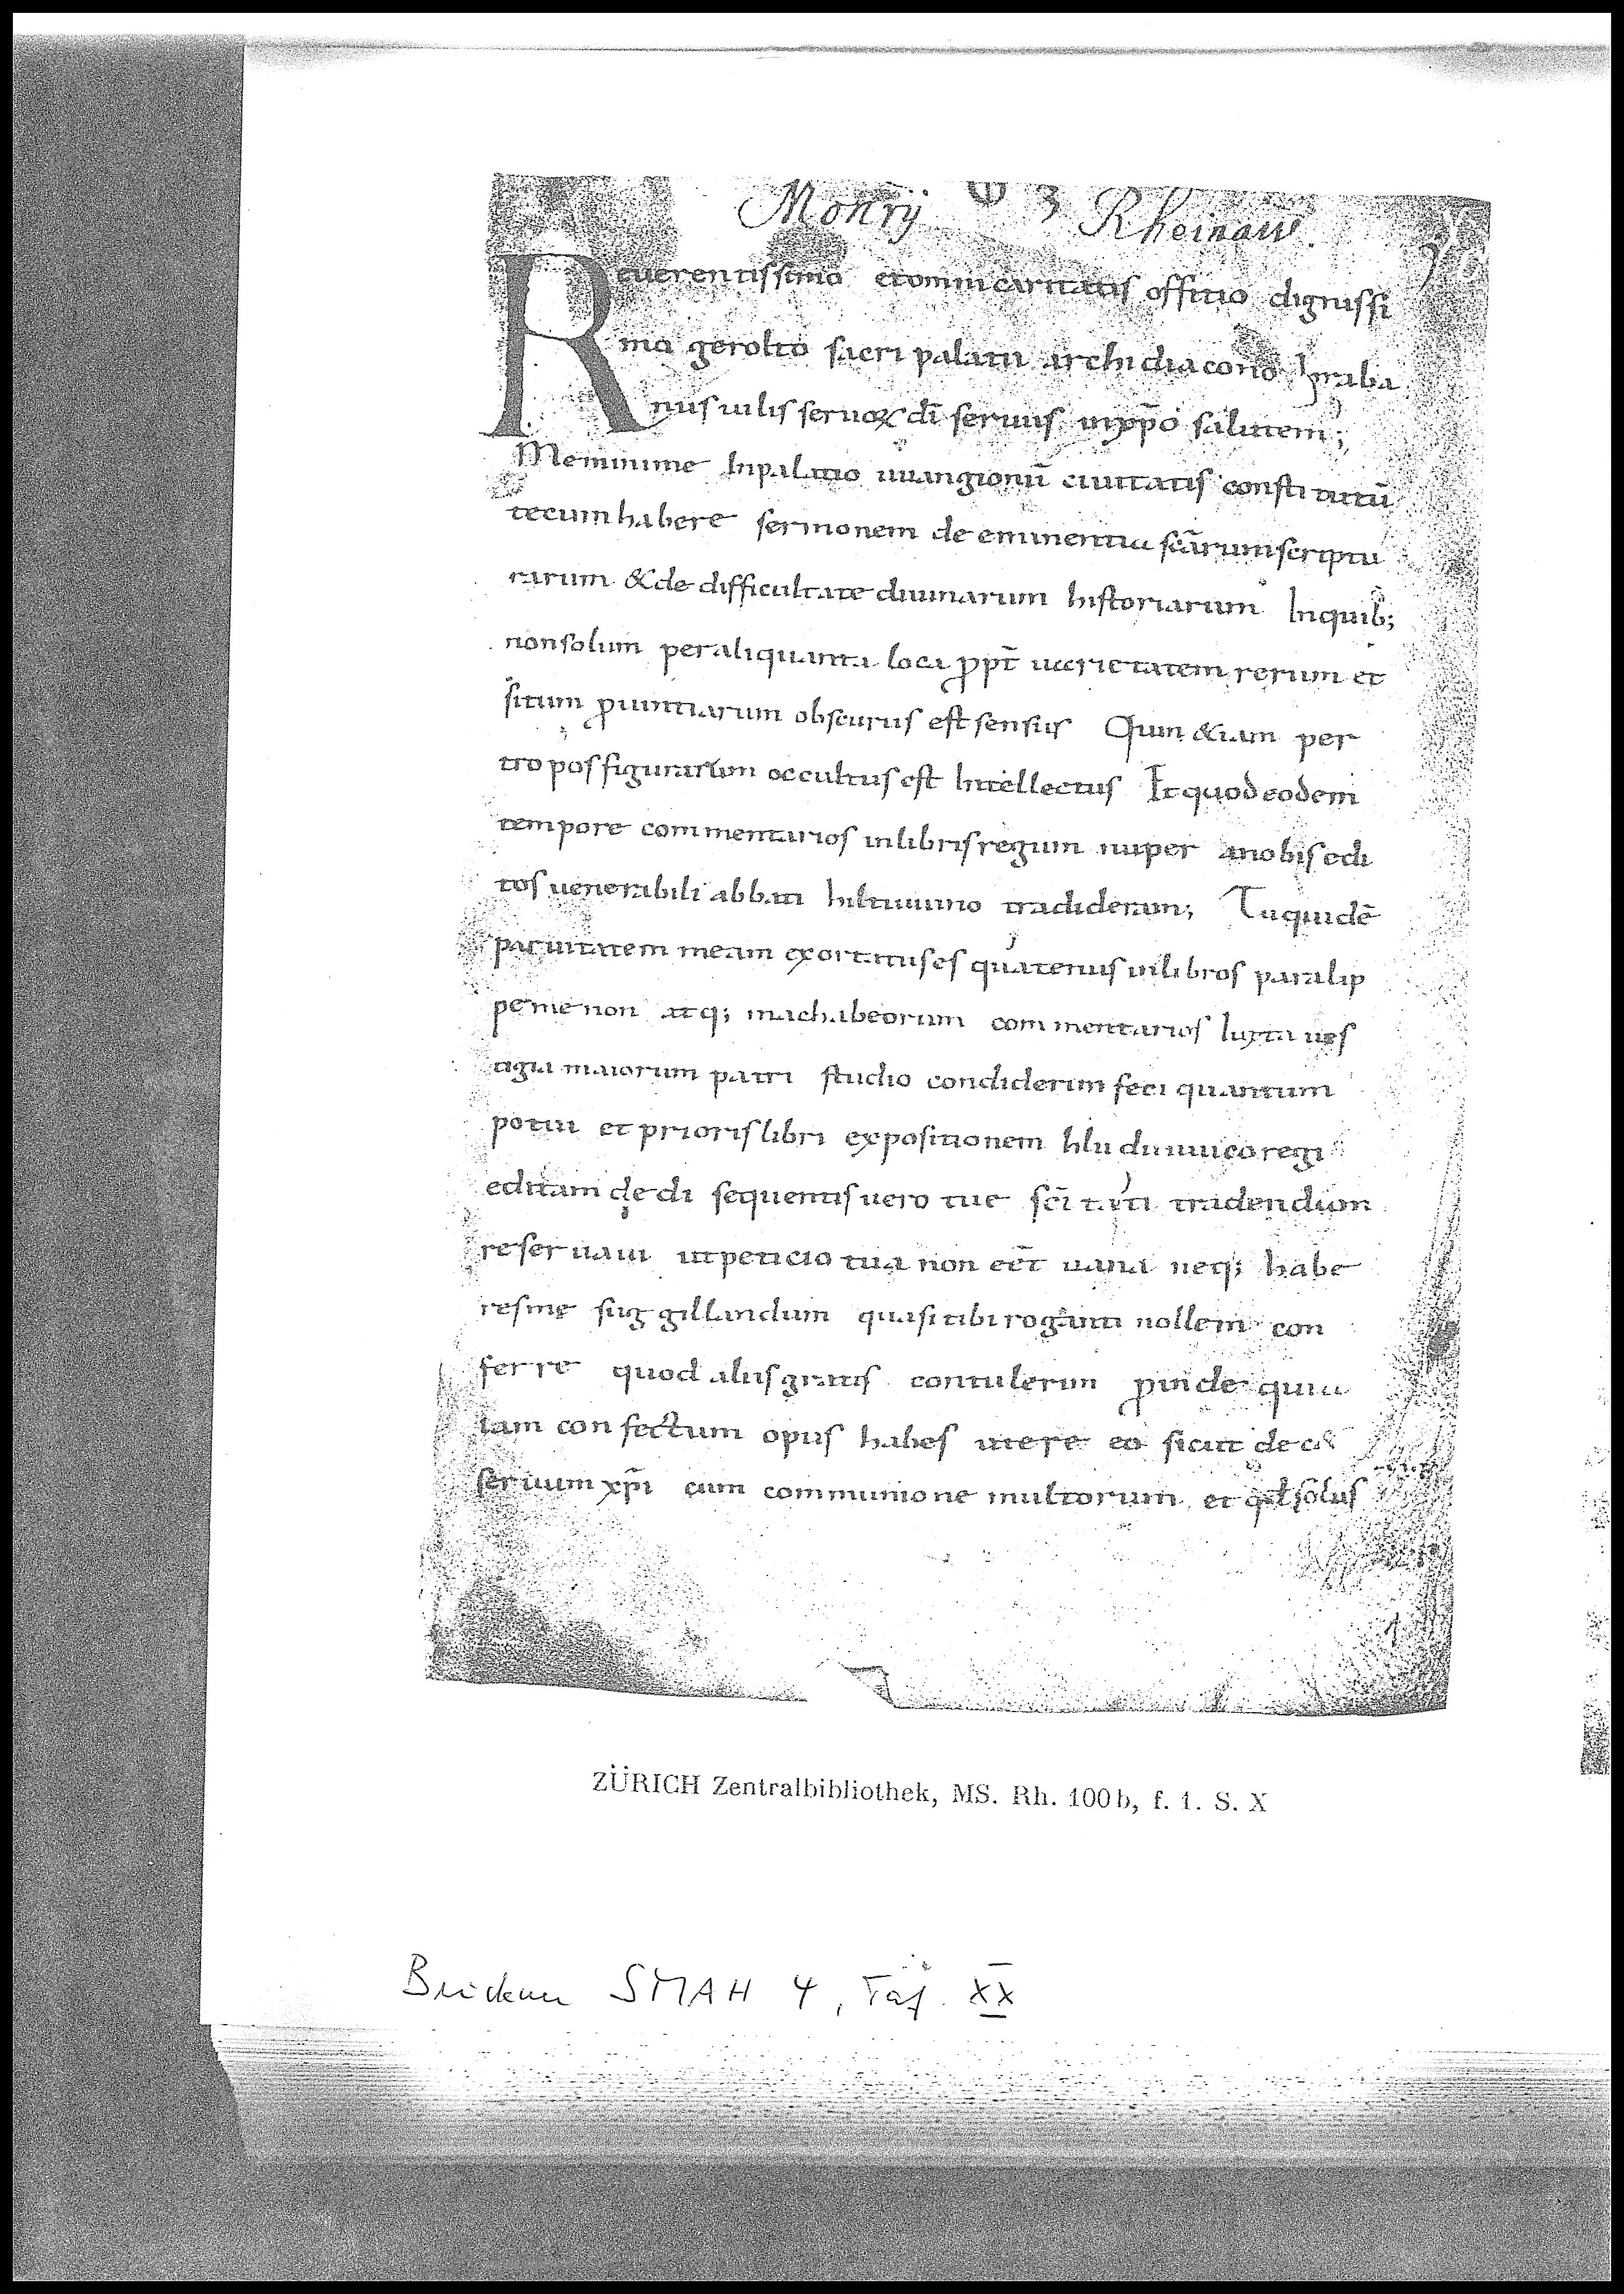 Monrij Rheinaw.
Reuerentissimo etomni caritatis offitio dignissi
mo gerolto sacri palatii archidiacono hraba
nus uilis seruoꝝ dī seruus inxp̄o salutem;
Memini me Inpalatio uuangionū ciuitatis constitutū
tecum habere sermonem de eminentia scārum scriptu
rarum &de difficultate diuinarum historiarum Inquib;
nonsolum peraliquanta loca ꝓpt̄ uarietatem rerum et
situm ꝓuintiarum obscurus est sensus Quin &iam per
tropos figurarum occultus est Intellectus Et quod eodem
tempore commentarios inlibris regum nuper anobis edi
tos uenerabili abbati hiltiuuino tradideram; Tu quidē
paruitatem meam exortatus es quatenus inlibros paralip
pemenon atq; machabeorum commentarios Iuxta ues
tigia maiorum patri studio condiderim feci quantum
potui et prioris libri expositionem hluduuuico regi
editam dedi sequentis uero tue scī tati tradendum
reseruaui ut peticio tua non eēt uana neq; habe
res me suggillandum quasi tibi roganti nollem con
ferre quod aliis gratis contulerim ꝓinde quia
iam confectum opus habes utere eo sicut dec&
seruum xp̄i cum communione multorum et qđ solus
1
ZÜRICH Zentralbibliothek, MS. Rh. 100b, f. 1. S. X
SMAH 4, Taf. XX